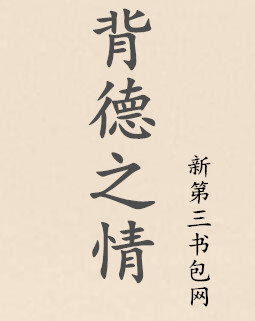 背德之情
新第三书包网